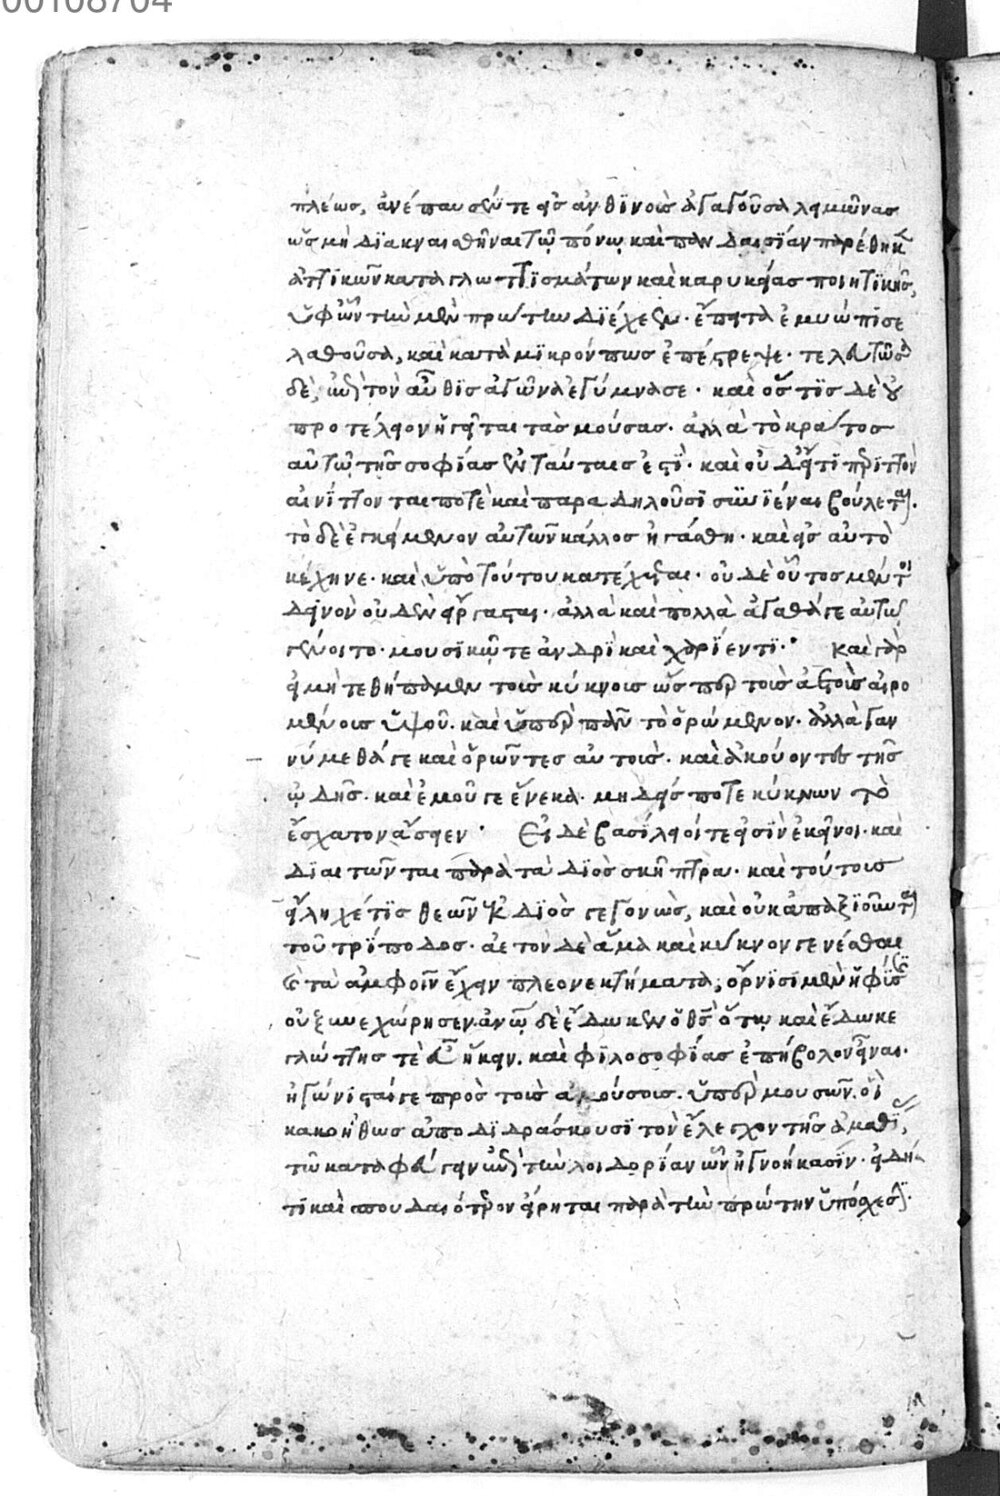 00108704
πλέως, ἀνέπαυσέ τε εἰς ἀνθϊνοὺς ἀγαγοῦσα λειμῶνας
ὡς μὴ δϊακναισθῆναι τῷ πόνῳ καὶ πᾶν δαισίαν παρέθηκε
ἀττικῶν κατὰ γλωττϊσμάτων καὶ καρυκείας ποιητϊκῆς,
ὑφ' ὧν τὴν μὲν πρώτην διέχεεν. ἔπειτα ἐμυώπισε
λαθοῦσα, καὶ κατὰ μϊκρόν πως ἐπέστρεψε. τελευτῶσα
δὲ, εἰς τὸν αὖθϊς ἀγῶνα ἐγύμνασε. καὶ ὅς τϊς δὲ οὐ
προτέλειον ἥγηται τὰς μούσας. ἀλλὰ τὸ κράτος
αὐτῷ τῆς σοφίας ἐν ταύταις ἐστὶ. καὶ οὐ δεῖ τι περιττὸν
αἰνίττονται ποτὲ καὶ παραδηλοῦσϊ συνϊέναι βούλεται.
τὸ δὲ ἐγκείμενον αὐτῶν κάλλος ἠγάσθη. καὶ εἰς αὐτὸ
κέχηνε. καὶ ὑπὸ τούτου κατέχεται. οὐδὲ οὗτος μέντοι
δεινὸν οὐδὲν εἴργασται. ἀλλὰ καὶ πολλὰ ἀγαθά γε αὐτῷ
γένοιτο. μουσϊκῷ τε ἀνδρὶ καὶ χαρϊέντϊ. καὶ γὰρ
εἰ μὴ τεθήπαμεν τοῖς κύκνοις ὥσπερ τοῖς ἀετοῖς αἰρο
μένοις ὑψοῦ. καὶ ὑπὲρ πᾶν τὸ ὁρώμενον. ἀλλὰ γαν
νύμεθά γε καὶ ὁρῶντες αὐτοὺς. καὶ ἀκούοντες τῆς
ᾠδῆς. καὶ ἐμοῦ γε ἕνεκα. μηδείς ποτε κύκνων τὸ
ἔσχατον ἄσειεν. Εἰ δὲ βασίλειοί τε εἰσὶν ἐκεῖνοι. καὶ
δϊαιτῶνται παρὰ τὰ δϊὸς σκῆπτρα. καὶ τούτοις
εἴληχέ τϊς θεῶν ἐκ δϊὸς γεγονὼς, καὶ οὐκ ἀπαξϊοῦνται
τοῦ τρίποδος. ἀετὸν δὲ ἅμα καὶ κύκνον γενέσθαι
καὶ τὰ ἀμφοῖν ἔχειν πλεονεκτήματα, ὄρνισι μὲν ἡ φύσις
οὐ ξυνεχώρησεν. ἀνθρώπῳ δὲ ἔδωκεν ὁ θεὸς ὅτῳ καὶ ἔδωκε
γλώττης τὲ εὖ ἥκειν. καὶ φϊλοσοφίας ἐπήβολον εἶναι.
ἠγώνισταί γε πρὸς τοὺς ἀμούσους. ὑπὲρ μουσῶν. οἳ
κακοήθως ἀποδϊδράσκουσϊ τὸν ἔλεγχον τῆς ἀμαθίας,
τῷ καταφεύγειν εἰς τὴν λοιδορίαν ὧν ἠγνοήκασϊν. εἰ δή
τϊ καὶ σπουδαιότερον εἴρηται παρὰ τὴν πρώτην ὑπόσχεσιν.